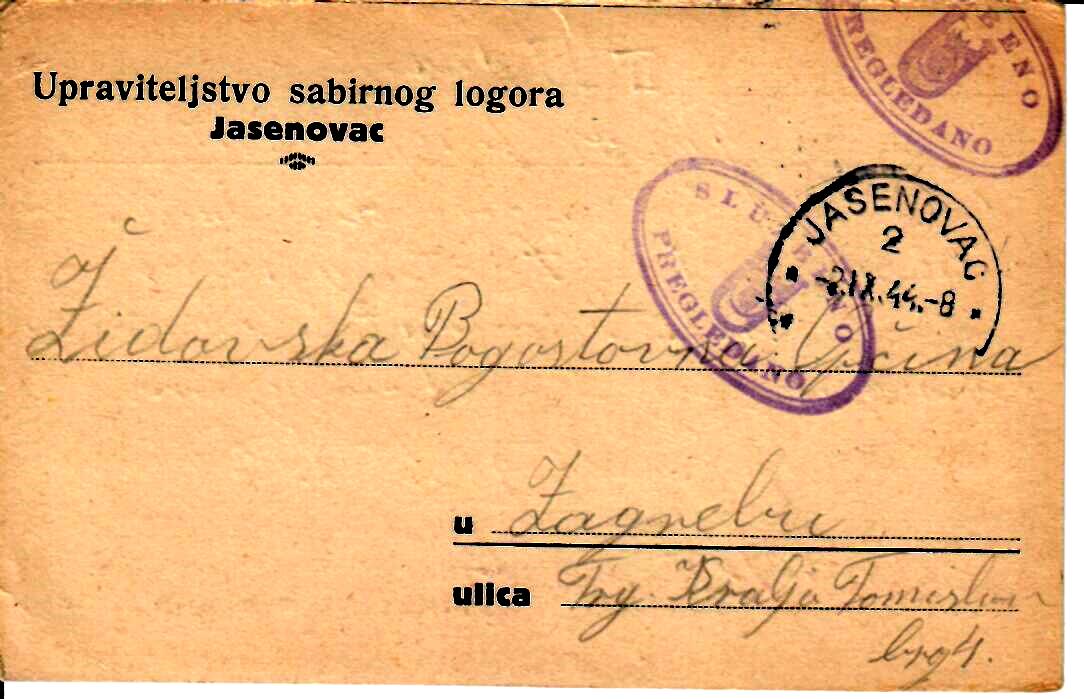 Upraviteljstvo sabirnog logora
Jasenovac
BENO
PREGLEDANO
SLUŽBENO
PREGLEDANO
JASENOVAC
2
-2.IX.44.-8
Židovska Bogoštovna Općina
u Zagrebu
ulica Trg. Kralja Tomislava
brg 4.